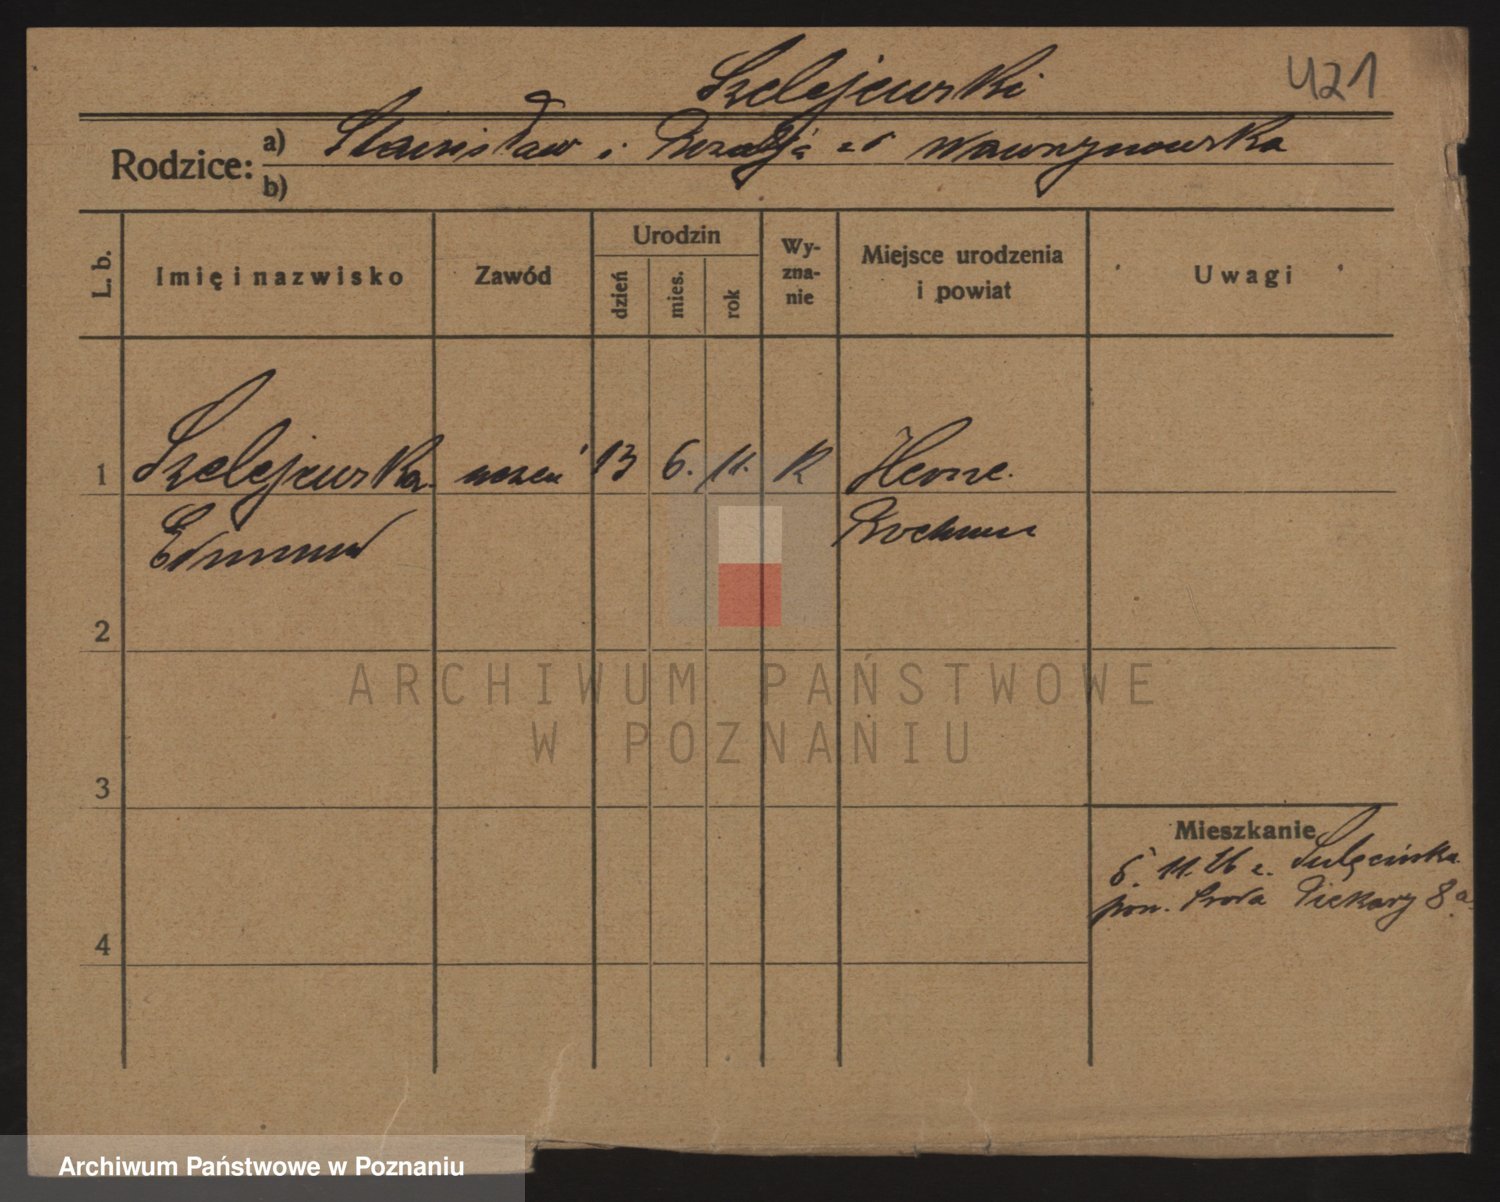 421
Szelejewski
Rodzice: a) Stanisław i Rozalja zd Wawrzynowska
b)
L. b.
Imię i nazwisko
Zawód
Urodzin
dzień
mies.
rok
Wy-
zna-
nie
Miejsce urodzenia
i powiat
Uwagi
1 Szelejewska uczeń 13 6. 11. K Herne.
Edmund Bochum
2
3
4
Mieszkanie
6. 11. 26 z. Sulęcińska
pow. Środa Piekary 8a
ARCHIWUM PAŃSTWOWE
W POZNANIU
Archiwum Państwowe w Poznaniu